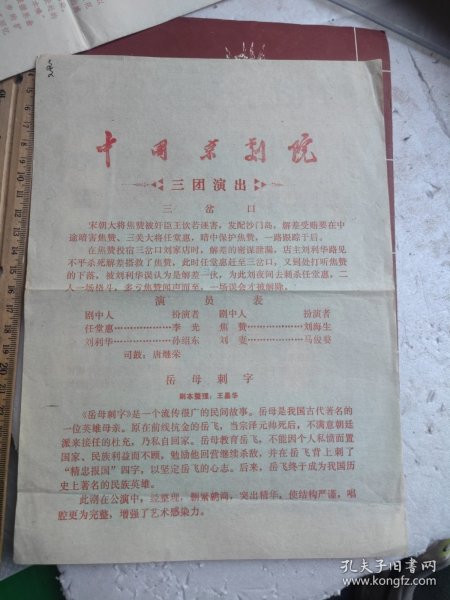 中国京剧院
三团演出
三岔口
宋朝大将焦赞被奸臣王钦若诬害，发配沙门岛，解差受贿要在中
途暗害焦赞，三关大将任堂惠，暗中保护焦赞，一路跟踪于后。
在焦赞投宿三岔口刘家店时，解差的密谋泄漏，店主刘利华路见
不平杀死解差搭救了焦赞，此时任堂惠赶至三岔口，又到处打听焦赞
的下落，被刘利华误认为是解差一伙，为此刘夜间去刺杀任堂惠，二
人一场格斗，多亏焦赞闻声而至，一场误会才被解除。
演员表
剧中人 扮演者 剧中人 扮演者
任堂惠………………李光 焦赞………………刘海生
刘利华………………孙绍东 刘妻………………马俊婴
司鼓：唐继荣
岳母刺字
剧本整理：王晶华
《岳母刺字》是一个流传很广的民间故事。岳母是我国古代著名的
一位英雄母亲。原在前线抗金的岳飞，当宗泽元帅死后，不满意朝廷
派来接任的杜充，乃私自回家。岳母教育岳飞，不能因个人私愤而置
国家、民族利益而不顾，勉励他回营继续杀敌，并在岳飞背上刺了
“精忠报国”四字，以坚定岳飞的心志。后来，岳飞终于成为我国历
史上著名的民族英雄。
此剧在公演中，经整理，删繁就简，突出精华，使结构严谨，唱
腔更为完整，增强了艺术感染力。
孔夫子旧书网
www.kongfz.com